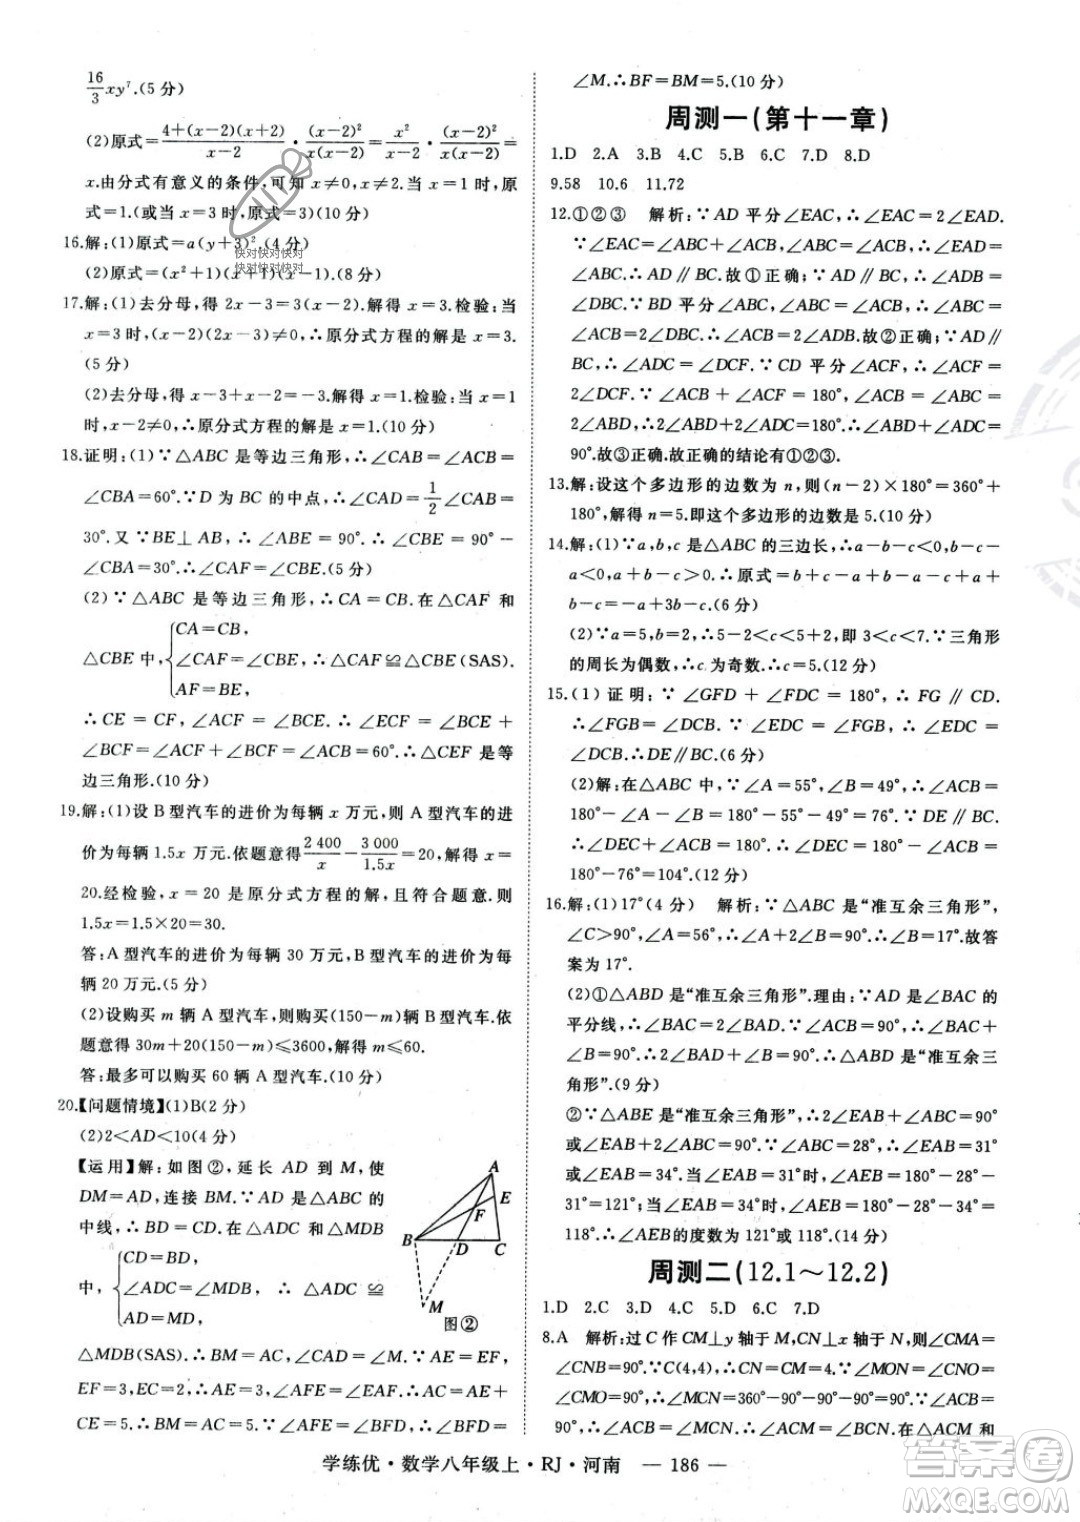 16/3 xy⁷.(5 分)
(2)原式=4+(x-2)(x+2)/x-2 · (x-2)²/x(x-2) = x²/x-2 · (x-2)²/x(x-2) =
x.由分式有意义的条件,可知 x≠0,x≠2.当 x=1 时,原
式=1.(或当 x=3 时,原式=3)(10 分)
16.解:(1)原式=a(y+3)².(4 分)
(2)原式=(x²+1)(x+1)(x-1).(8 分)
快对快对快对
快对快对快对
17.解:(1)去分母,得 2x-3=3(x-2).解得 x=3.检验:当
x=3 时,(x-2)(2x-3)≠0,∴原分式方程的解是 x=3.
(5 分)
(2)去分母,得 x-3+x-2=-3.解得 x=1.检验:当 x=1
时,x-2≠0,∴原分式方程的解是 x=1.(10 分)
18.证明:(1)∵△ABC 是等边三角形,∴∠CAB=∠ACB
=∠CBA=60°.∵D 为 BC 的中点,∴∠CAD=1/2∠CAB=
30°.又∵BE⊥AB,∴∠ABE=90°.∴∠CBE=90°-
∠CBA=30°.∴∠CAF=∠CBE.(5 分)
(2)∵△ABC 是等边三角形,∴CA=CB.在△CAF 和
△CBE 中,{CA=CB, ∠CAF=∠CBE, AF=BE, ∴△CAF≌△CBE(SAS).
∴CE=CF,∠ACF=∠BCE.∴∠ECF=∠BCE+
∠BCF=∠ACF+∠BCF=∠ACB=60°.∴△CEF 是等
边三角形.(10 分)
19.解:(1)设 B 型汽车的进价为每辆 x 万元,则 A 型汽车的进
价为每辆 1.5x 万元.依题意得 2 400/x - 3 000/1.5x =20,解得 x=
20.经检验,x=20 是原分式方程的解,且符合题意.则
1.5x=1.5×20=30.
答:A 型汽车的进价为每辆 30 万元,B 型汽车的进价为每
辆 20 万元.(5 分)
(2)设购买 m 辆 A 型汽车,则购买(150-m)辆 B 型汽车.依
题意得 30m+20(150-m)≤3600,解得 m≤60.
答:最多可以购买 60 辆 A 型汽车.(10 分)
20.【问题情境】(1)B(2 分)
(2)2<AD<10(4 分)
【运用】解:如图②,延长 AD 到 M,使
DM=AD,连接 BM.∵AD 是△ABC 的
中线,∴BD=CD.在△ADC 和△MDB
中,{CD=BD, ∠ADC=∠MDB, AD=MD, ∴△ADC≌
A
E
F
B
D
C
M
图②
△MDB(SAS).∴BM=AC,∠CAD=∠M.∵AE=EF,
EF=3,∴AE=3,∠CAD=∠AFE.∴AC=AE+
CE=5.∴BM=AC=5.∵∠AFE=∠BFD,∴∠BFD=
∠M.∴BF=BM=5.(10 分)
周测一(第十一章)
1.D 2.A 3.B 4.C 5.B 6.C 7.D 8.D
9.58 10.6 11.72
12.①②③ 解析:∵AD 平分∠EAC,∴∠EAC=2∠EAD.
∵∠EAC=∠ABC+∠ACB,∠ABC=∠ACB,∴∠EAD=
∠ABC.∴AD∥BC.故①正确;∵AD∥BC,∴∠ADB=
∠DBC.∵BD 平分∠ABC,∠ABC=∠ACB,∴∠ABC=
∠ACB=2∠DBC.∴∠ACB=2∠ADB.故②正确;∵AD∥
BC,∴∠ADC=∠DCF.∵CD 平分∠ACF,∴∠ACF=
2∠DCF.∵∠ACB+∠ACF=180°,∠ACB=2∠ADB,∴
2∠ADB+2∠DCF=180°.∴∠ADB+∠DCF=∠BDC=
90°.故③正确.故正确的结论有①②③.
13.解:设这个多边形的边数为 n,则(n-2)×180°=360°+
180°,解得 n=5.即这个多边形的边数是 5.(10 分)
14.解:(1)∵a,b,c 是△ABC 的三边长,∴a-b-c<0,b-c-
a<0,c-a-b<0.∴原式=b+c-a+c+a-b+a+
b-c=a+b+c.(6 分)
(2)∵a=5,b=2,∴5-2<c<5+2,即 3<c<7.∵三角形
的周长为偶数,∴c 为奇数.∴c=5.(12 分)
15.(1)证明:∵∠GFD+∠FDC=180°,∴FG∥CD.
∴∠FGB=∠DCB.∵∠EDC=∠FGB,∴∠EDC=
∠DCB.∴DE∥BC.(6 分)
(2)解:在△ABC 中,∵∠A=55°,∠ACB=49°,∴∠B=
180°-∠A-∠ACB=180°-55°-49°=76°.∵DE∥BC,
∴∠BDE+∠B=180°.∴∠BDE=180°-∠B=
180°-76°=104°.(12 分)
16.解:(1)17°(4 分) 解析:∵△ABC 是“准互余三角形”,
∠C>90°,∠A=56°,∴∠A+2∠B=90°.∴∠B=17°.故答
案为 17°.
(2)①△ABD 是“准互余三角形”.理由:∵AD 是∠BAC 的
平分线,∴∠BAC=2∠BAD.∵∠ACB=90°,∴∠BAC+
∠B=90°.∴2∠BAD+∠B=90°.∴△ABD 是“准互余三
角形”.(9 分)
②∵△ABE 是“准互余三角形”,∴2∠EAB+∠ABC=90°
或∠EAB+2∠ABC=90°.∵∠ABC=28°,∴∠EAB=31°
或∠EAB=34°.当∠EAB=31°时,∠AEB=180°-28°-
31°=121°;当∠EAB=34°时,∠AEB=180°-28°-34°=
118°.∴∠AEB的度数为 121°或 118°.(14 分)
周测二(12.1～12.2)
1.D 2.C 3.D 4.C 5.D 6.C 7.D
8.A 解析:过 C 作 CM⊥y 轴于 M,CN⊥x 轴于 N,则∠CMA=
∠CNB=90°.∵C(4,4),∴CN=CM=4.∵∠MON=∠CNO=
∠CMO=90°,∴∠MCN=360°-90°-90°-90°=90°.
∵∠ACB=90°,∴∠ACB=∠MCN.∴∠ACM=∠BCN.在△ACM 和
学练优·数学八年级上·RJ·河南 — 186 —
答案圈
MXQE.COM